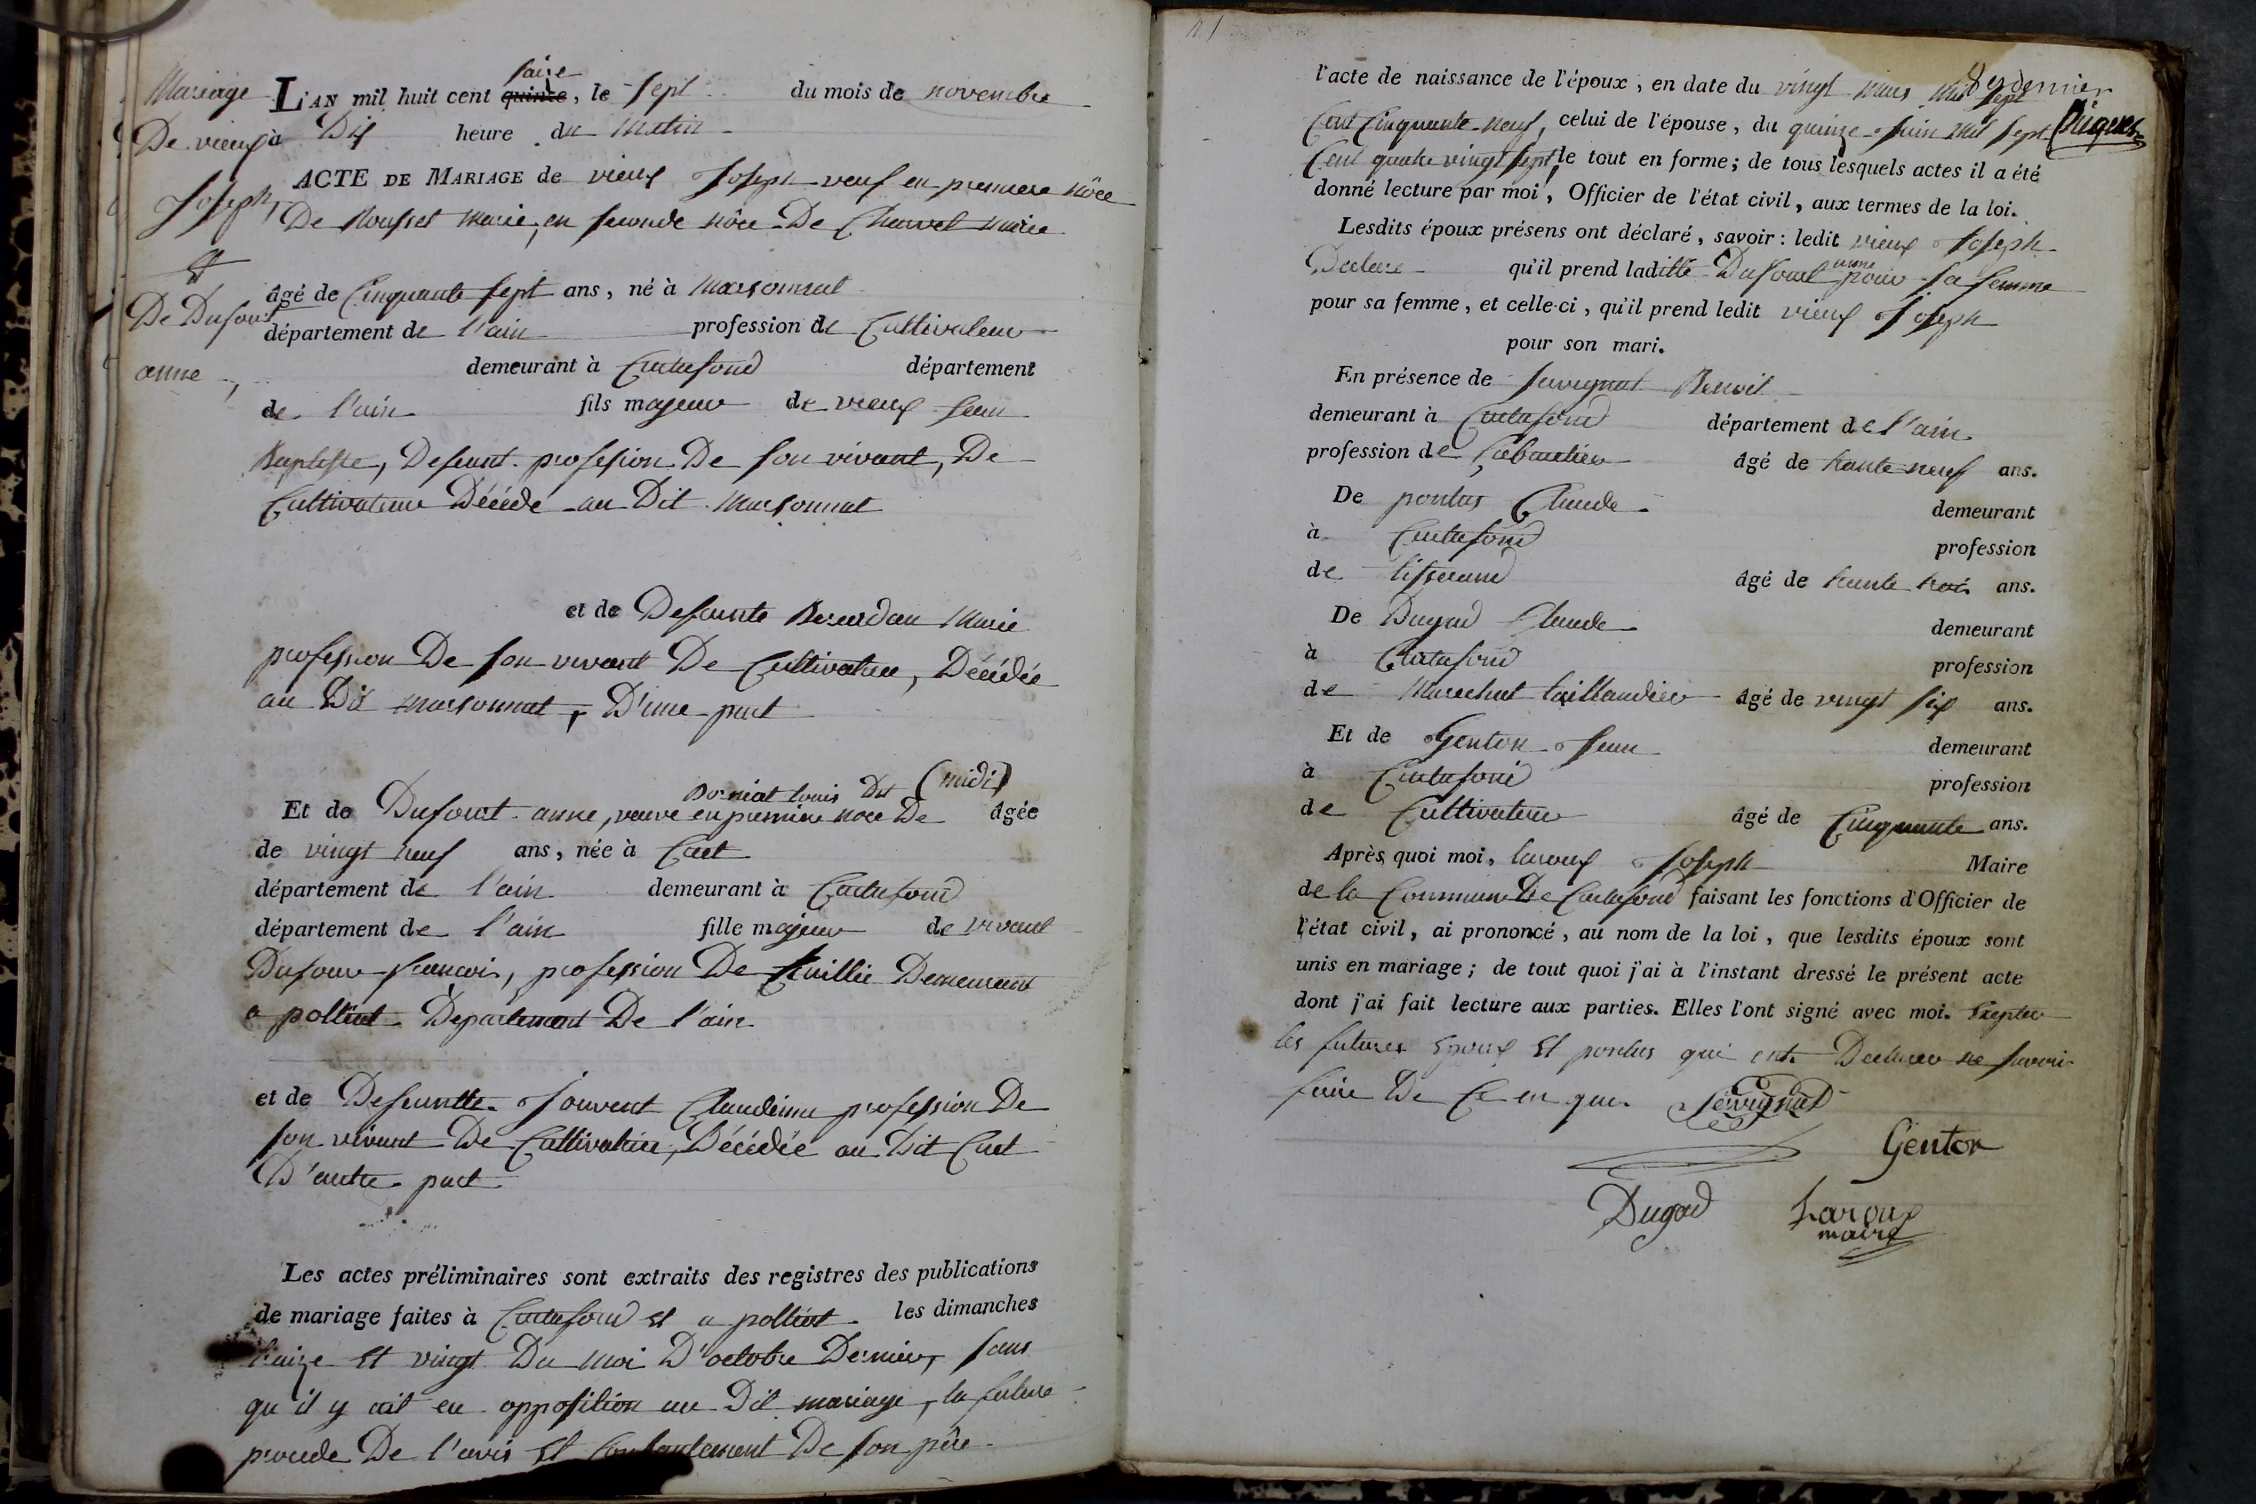 Mariage
De vieux
Joseph,
Et
De Dufour
anne,
L'AN mil huit cent quinze saize, le sept du mois de novembre
à Dix heure du matin
ACTE DE MARIAGE de vieux Joseph veuf en premiere nôce
De Rousset marie, en seconde nôce De Charvet marie
âgé de Cinquante sept ans, né à marsonnat
département de l'ain profession de Cultivateur
demeurant à Curtafond département
de l'ain fils majeur de vieux jean
Baptiste, Defeunt profession De son vivant, De
Cultivateur Décédé au Dit marsonnat
et de Defeunte Bourdon Marie
profession De son vivant De Cultivatrice, Décédée
au Dit marsonnat, D'une part
Borniat louis Dit (midi)
Et de Dufourt anne, veuve en premiere noce De âgée
de vingt neuf ans, née à Cuet
département de l'ain demeurant à Curtafond
département de l'ain fille majeur de vivant
Dufour francois, profession De Demeurant
a polliat Département De l'ain
et de Defeuntte Jouvent Claudinne profession De
son vivant De Cultivatrice, Décédée au Dit Cuet
D'autre part
Les actes préliminaires sont extraits des registres des publications
de mariage faites à Curtafond et a polliat les dimanches
traize et vingt Du moi D'octobre Dernier, sans
qu'il y ait eu opposition au Dit mariage, la future
procede De l'avis et Consentement De son père
l'acte de naissance de l'époux, en date du vingt mars mil sept
Cent Cinquante neuf, celui de l'épouse, du quinze juin mil sept
Cent quatre vingt sept, le tout en forme; de tous lesquels actes il a été
donné lecture par moi, Officier de l'état civil, aux termes de la loi.
Lesdits époux présens ont déclaré, savoir: ledit vieux Joseph
Declare qu'il prend laditte Dufourt anne pour sa femme
pour sa femme, et celle-ci, qu'il prend ledit vieux Joseph
pour son mari.
En présence de Sevregnat Benoit
demeurant à Curtafond département de l'ain
profession de Cabartier âgé de trante neuf ans.
De pontus Claude demeurant
à Curtafond profession
de tisserand âgé de trante trois ans.
De Dugad Claude demeurant
à Curtafond profession
de Marechal taillandier âgé de vingt six ans.
Et de Genton Jean demeurant
à Curtafond profession
de Cultivateur âgé de Cinquante ans.
Après quoi moi, laroux Joseph Maire
de la Commune De Curtafond faisant les fonctions d'Officier de
l'état civil, ai prononcé, au nom de la loi, que lesdits époux sont
unis en mariage; de tout quoi j'ai à l'instant dressé le présent acte
dont j'ai fait lecture aux parties. Elles l'ont signé avec moi. Exepter
les futures Epoux et pontus qui ont Declarer ne savoir
faire De Ce en quer Sevrignat
Genton
Dugad Laroux
maire